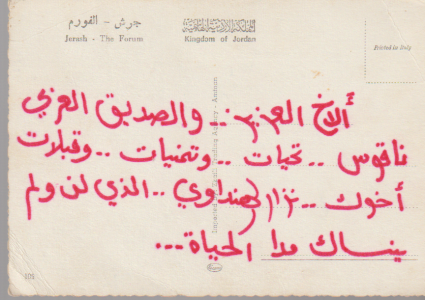 جرش - الفورم
Jerash - The Forum
المملكة الأردنية الهاشمية
Kingdom of Jordan
Printed in Italy
ألاخ العزيز .. والصديق العزيز
ناقوس .. تحيات .. وتمنيات .. وقبلات
أخوك .. نزار الهنداوي .. الذي لن ولم
ينساك مدا الحياة ...
Agency - Amman
101